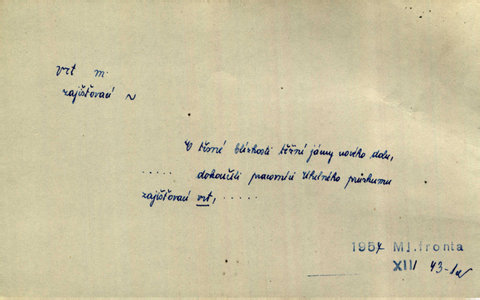 vrt m.
zajišťovací ~
V těsné blízkosti těžní jámy nového dolu,
..... dokončili pracovníci Uhelného průzkumu
zajišťovací vrt, ......
1957 Ml.fronta
XIII 43-1a